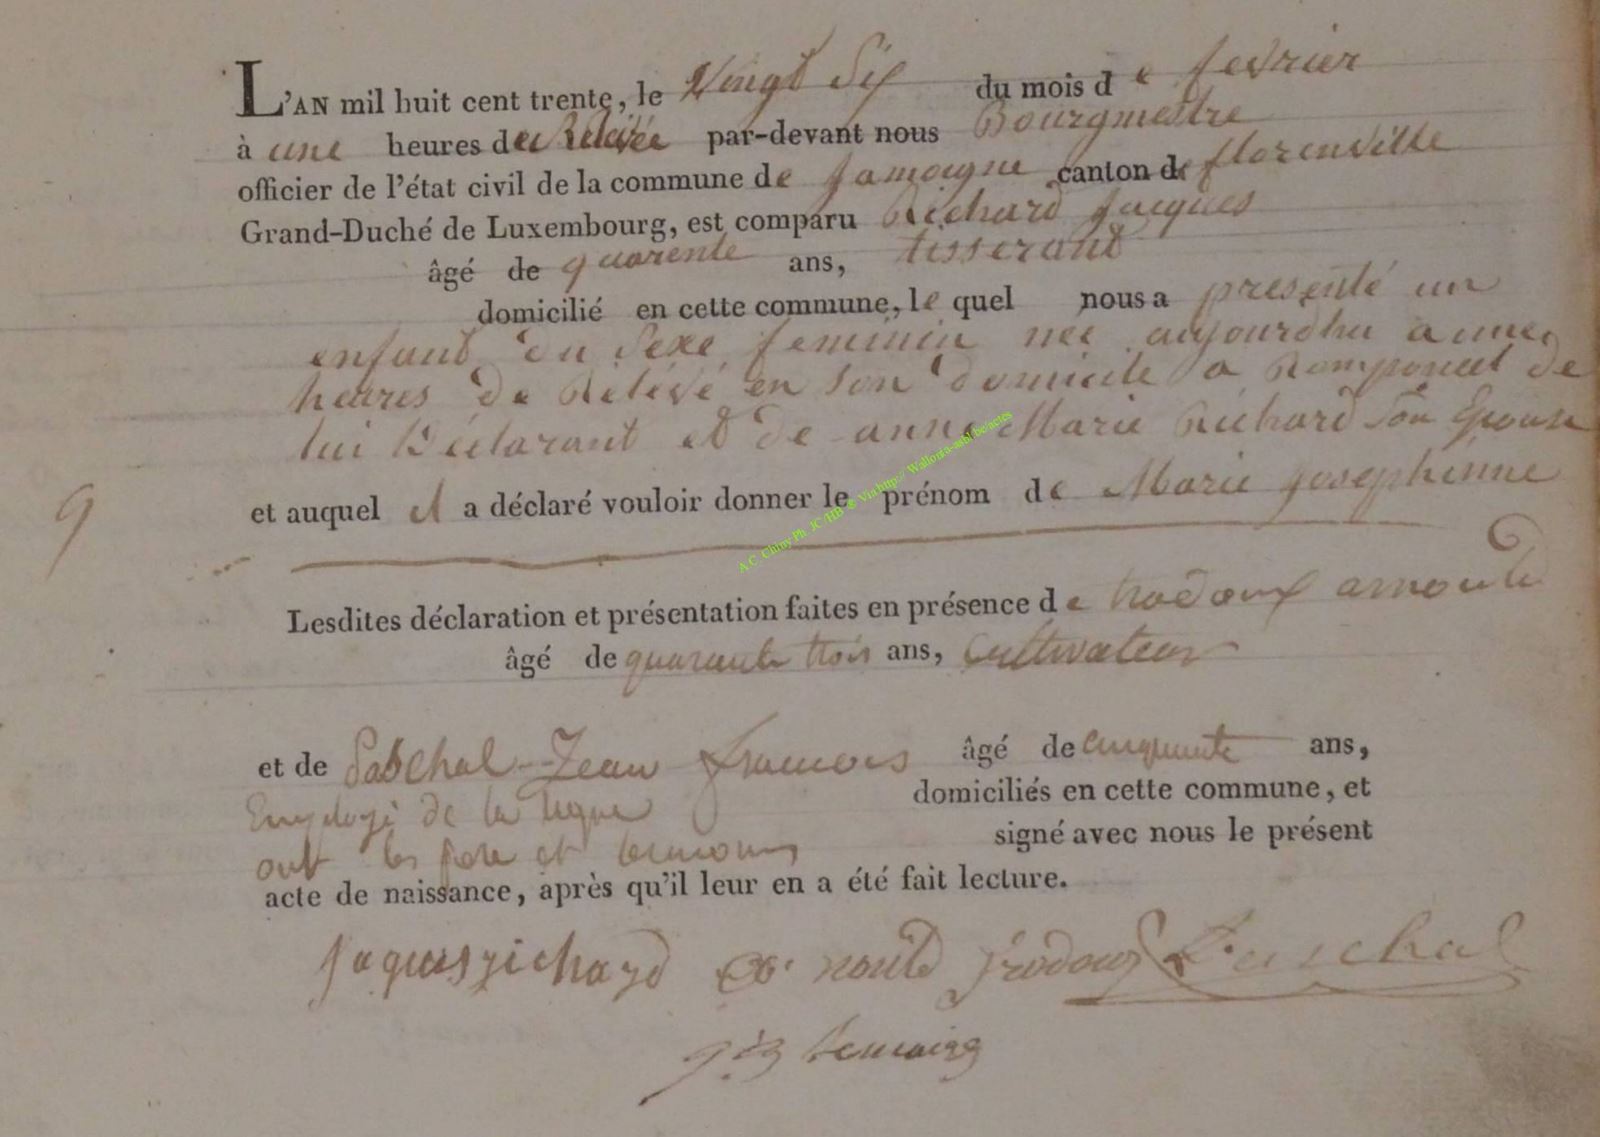 L'AN mil huit cent trente, le Vingt Six du mois de fevrier
à une heures de Relevée par-devant nous Bourgmestre
officier de l'état civil de la commune de Jamoigne canton de florenville
Grand-Duché de Luxembourg, est comparu Richard Jacques
âgé de quarente ans, tisserant
domicilié en cette commune, le quel nous a presenté un
enfant du Sexe feminin neé aujourdhui a une
heures de Relévé en son domicile a Romponcel de
lui Déclarant et de anne Marie Richard son Epouse
et auquel il a déclaré vouloir donner le prénom de Marie Josephinne
9
Lesdites déclaration et présentation faites en présence de arnould
âgé de quarante trois ans, Cultivateur
et de Paschal Jean francois âgé de cinquante ans,
Employé de la domiciliés en cette commune, et
ont les pere et temoins signé avec nous le présent
acte de naissance, après qu'il leur en a été fait lecture.
Jaques richard nould Paschal
A.C. Chiny Ph. JC/HB @ Via http:// Wallonia-asbl.be/actes